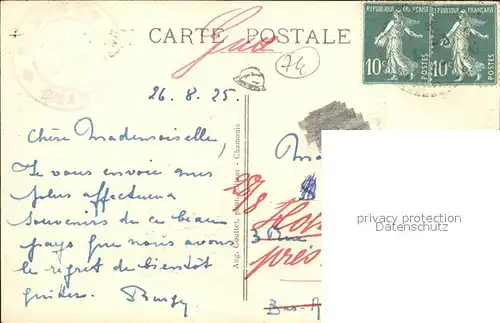 CARTE POSTALE
RÉPUBLIQUE FRANÇAISE
10c
POSTES
RÉPUBLIQUE FRANÇAISE
10c
POSTES
74
26.8.25.
Chère Mademoiselle,
Je vous envoie mes
plus affectueux
souvenirs de ce beau
pays que nous avons
le regret de bientôt
quitter.
Aug. Couttet, Chamonix
28/8
près
privacy protection
Datenschutz